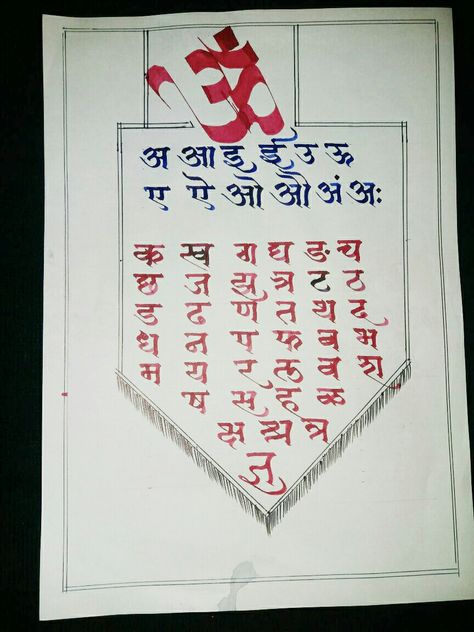 ॐ
अ आ इ ई उ ऊ
ए ऐ ओ औ अं अः
क ख ग घ ङ च
छ ज झ ञ ट ठ
ड ढ ण त थ द
ध न प फ ब भ
म य र ल व श
ष स ह ळ
क्ष श्र त्र
ज्ञ